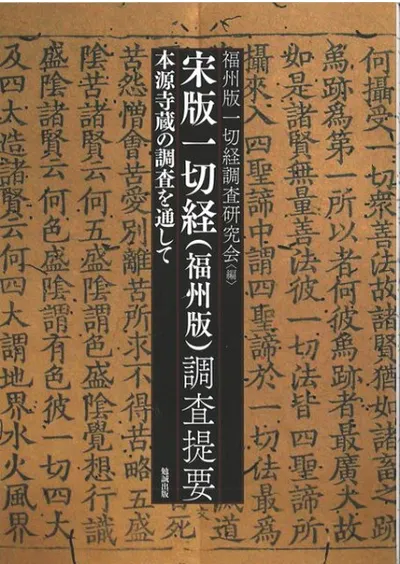 何攝受一切衆善法故諸賢猶如諸畜之跡
爲跡爲第一所以者何彼爲跡者最廣大故
如是諸賢無量善法彼一切法皆四聖諦所
攝來入四聖諦中謂四聖諦於一切
滅道
福州版一切経調査研究会〈編〉
宋版一切経(福州版)調査提要
本源寺蔵の調査を通して
勉誠出版
死
苦怨憎會苦愛別離苦所求不得苦略五盛
陰苦諸賢云何五盛陰謂色盛陰覺想行識
盛陰諸賢云何色盛陰謂有色彼一切四大
及四大造諸賢云何四大謂地界水火風界